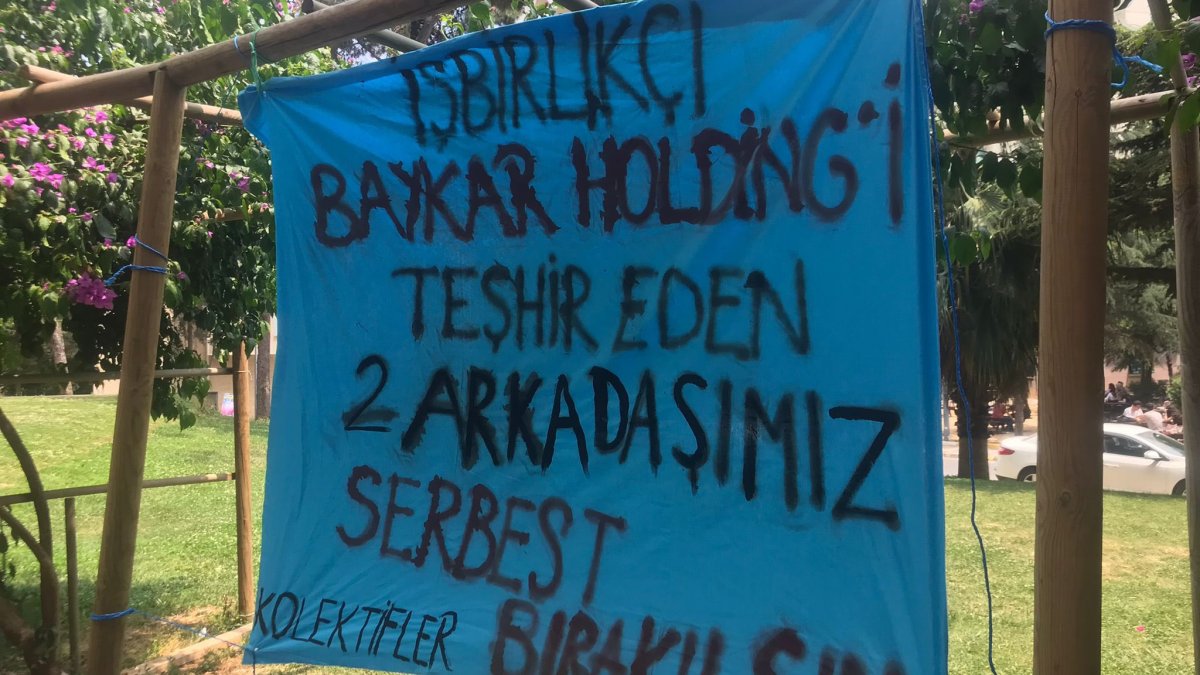 İŞBİRLİKÇİ
BAYKAR HOLDİNG'İ
TEŞHİR EDEN
2 ARKADAŞIMIZ
SERBEST
BIRAKILSIN
KOLEKTİFLER